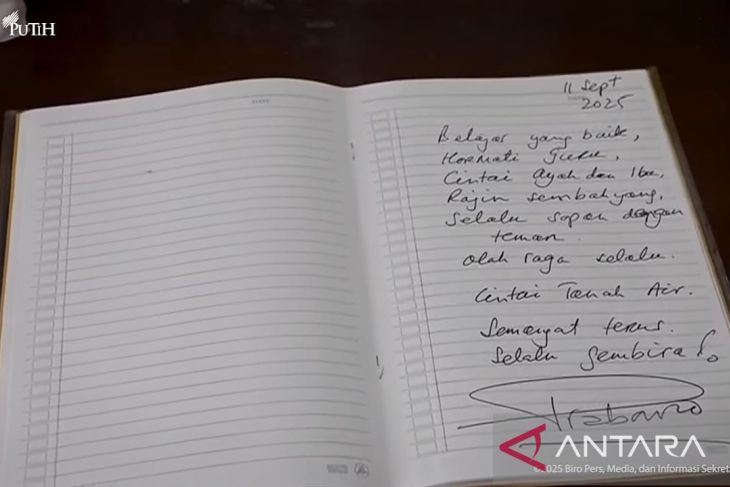 PUTIH
11 Sept
2025
Belajar yang baik,
Hormati guru,
Cintai Ayah dan Ibu,
Rajin sembahyang,
Selalu sopan dengan
teman.
Olah raga selalu.
Cintai Tanah Air.
Semangat terus.
Selalu gembira!
Prabowo
ANTARA
©2025 Biro Pers, Media, dan Informasi Sekret